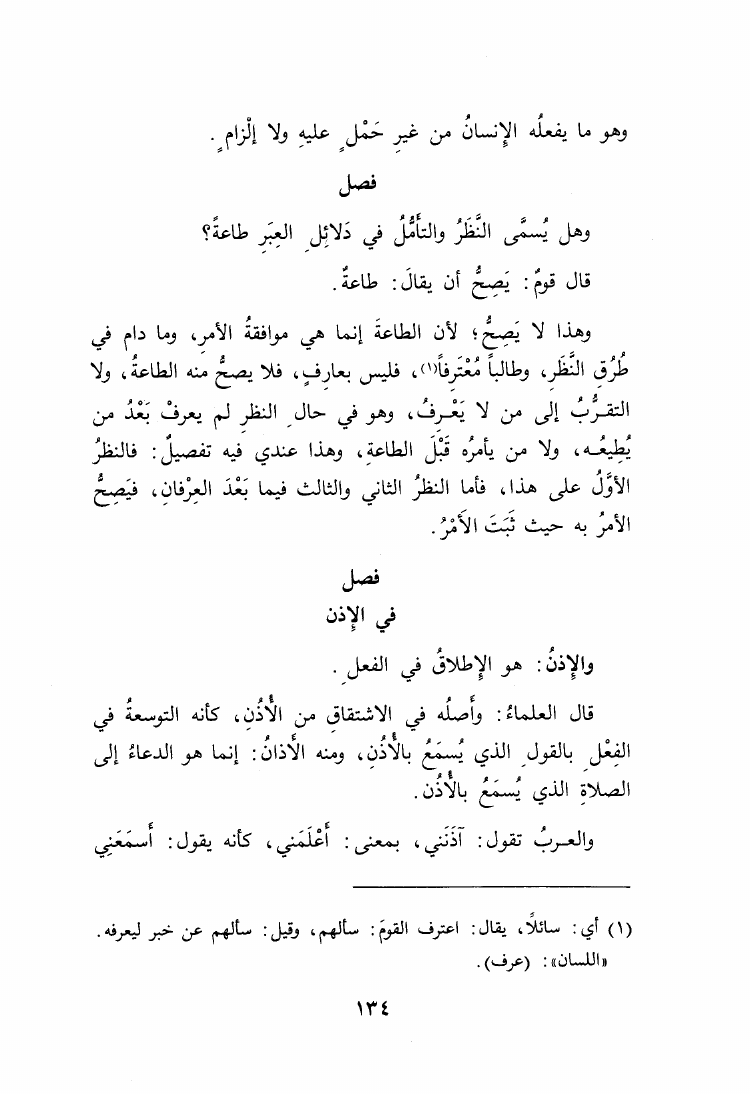 وهو ما يفعلُه الإِنسانُ من غيرِ حَمْلٍ عليهِ ولا إلْزامٍ.
فصل
وهل يُسمَّى النَّظَرُ والتأَمُّلُ في دَلائِلِ العِبَرِ طاعةً؟
قال قومٌ: يَصِحُّ أن يقالَ: طاعةٌ.
وهذا لا يَصِحُّ؛ لأن الطاعةَ إنما هي موافقةُ الأمرِ، وما دام في
طُرُقِ النَّظَرِ، وطالباً مُعْتَرِفاً(١)، فليس بعارِفٍ، فلا يصحُّ منه الطاعةُ، ولا
التقرُّبُ إلى من لا يَعْرِفُ، وهو في حالِ النظرِ لم يعرفْ بَعْدُ من
يُطِيعُه، ولا من يأمرُه قَبْلَ الطاعةِ، وهذا عندي فيه تفصيلٌ: فالنظرُ
الأوَّلُ على هذا، فأما النظرُ الثاني والثالث فيما بَعْدَ العِرْفانِ، فيَصِحُّ
الأمرُ به حيث ثَبَتَ الأَمْرُ.
فصل
في الإِذن
والإِذنُ: هو الإِطلاقُ في الفعلِ.
قال العلماءُ: وأَصلُه في الاشتقاقِ من الأُذُنِ، كأنه التوسعةُ في
الفِعْلِ بالقولِ الذي يُسمَعُ بالأُذُنِ، ومنه الأَذانُ: إنما هو الدعاءُ إلى
الصلاةِ الذي يُسمَعُ بالأُذُن.
والعربُ تقول: آذَنَني، بمعنى: أَعْلَمَني، كأنه يقول: أَسمَعَنِي
(١) أي: سائلًا، يقال: اعترف القومَ: سألهم، وقيل: سألهم عن خبر ليعرفه.
«اللسان»: (عرف).
١٣٤